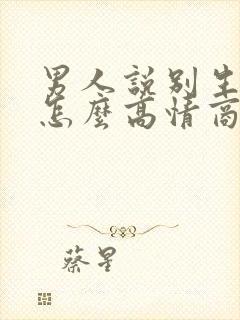 男人說别生
怎麼高情商
蔡星